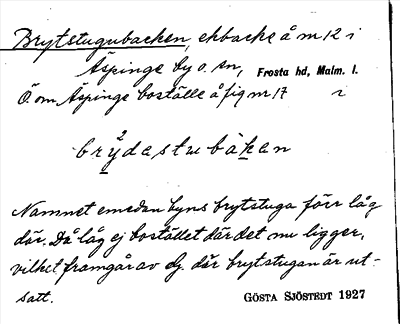 Brytstugubacken, ekbacke å m 12 i
Äspinge by o. sn, Frosta hd, Malm. l.
Ö. om Äspinge boställe å fig m 17 i
brydestubaken
Namnet emedan byns brytstuga förr låg
där. Då låg ej bostället där det nu ligger,
vilket framgår av dg. där brytstugan är ut-
satt. GÖSTA SJÖSTEDT 1927